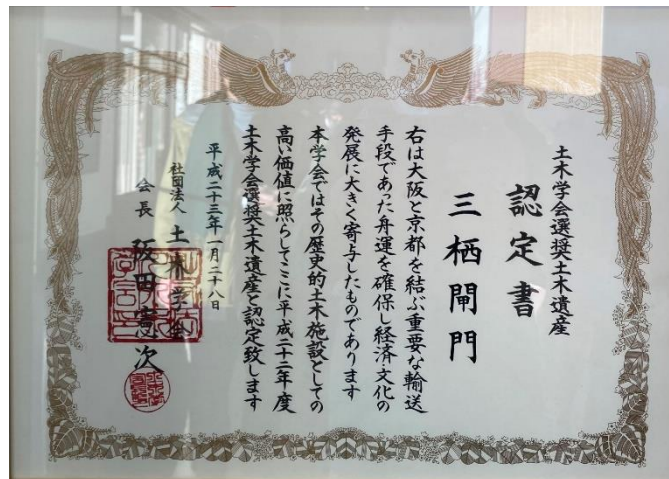 土木学会選奨土木遺産
認定書
三栖閘門
右は大阪と京都を結ぶ重要な輸送
手段であった舟運を確保し経済文化の
発展に大きく寄与したものであります
本学会ではその歴史的土木施設としての
高い価値に照らしてここに平成二十二年度
土木学会選奨土木遺産と認定致します
平成二十三年一月二十八日
社団法人 土木学会
会長 阪田憲次